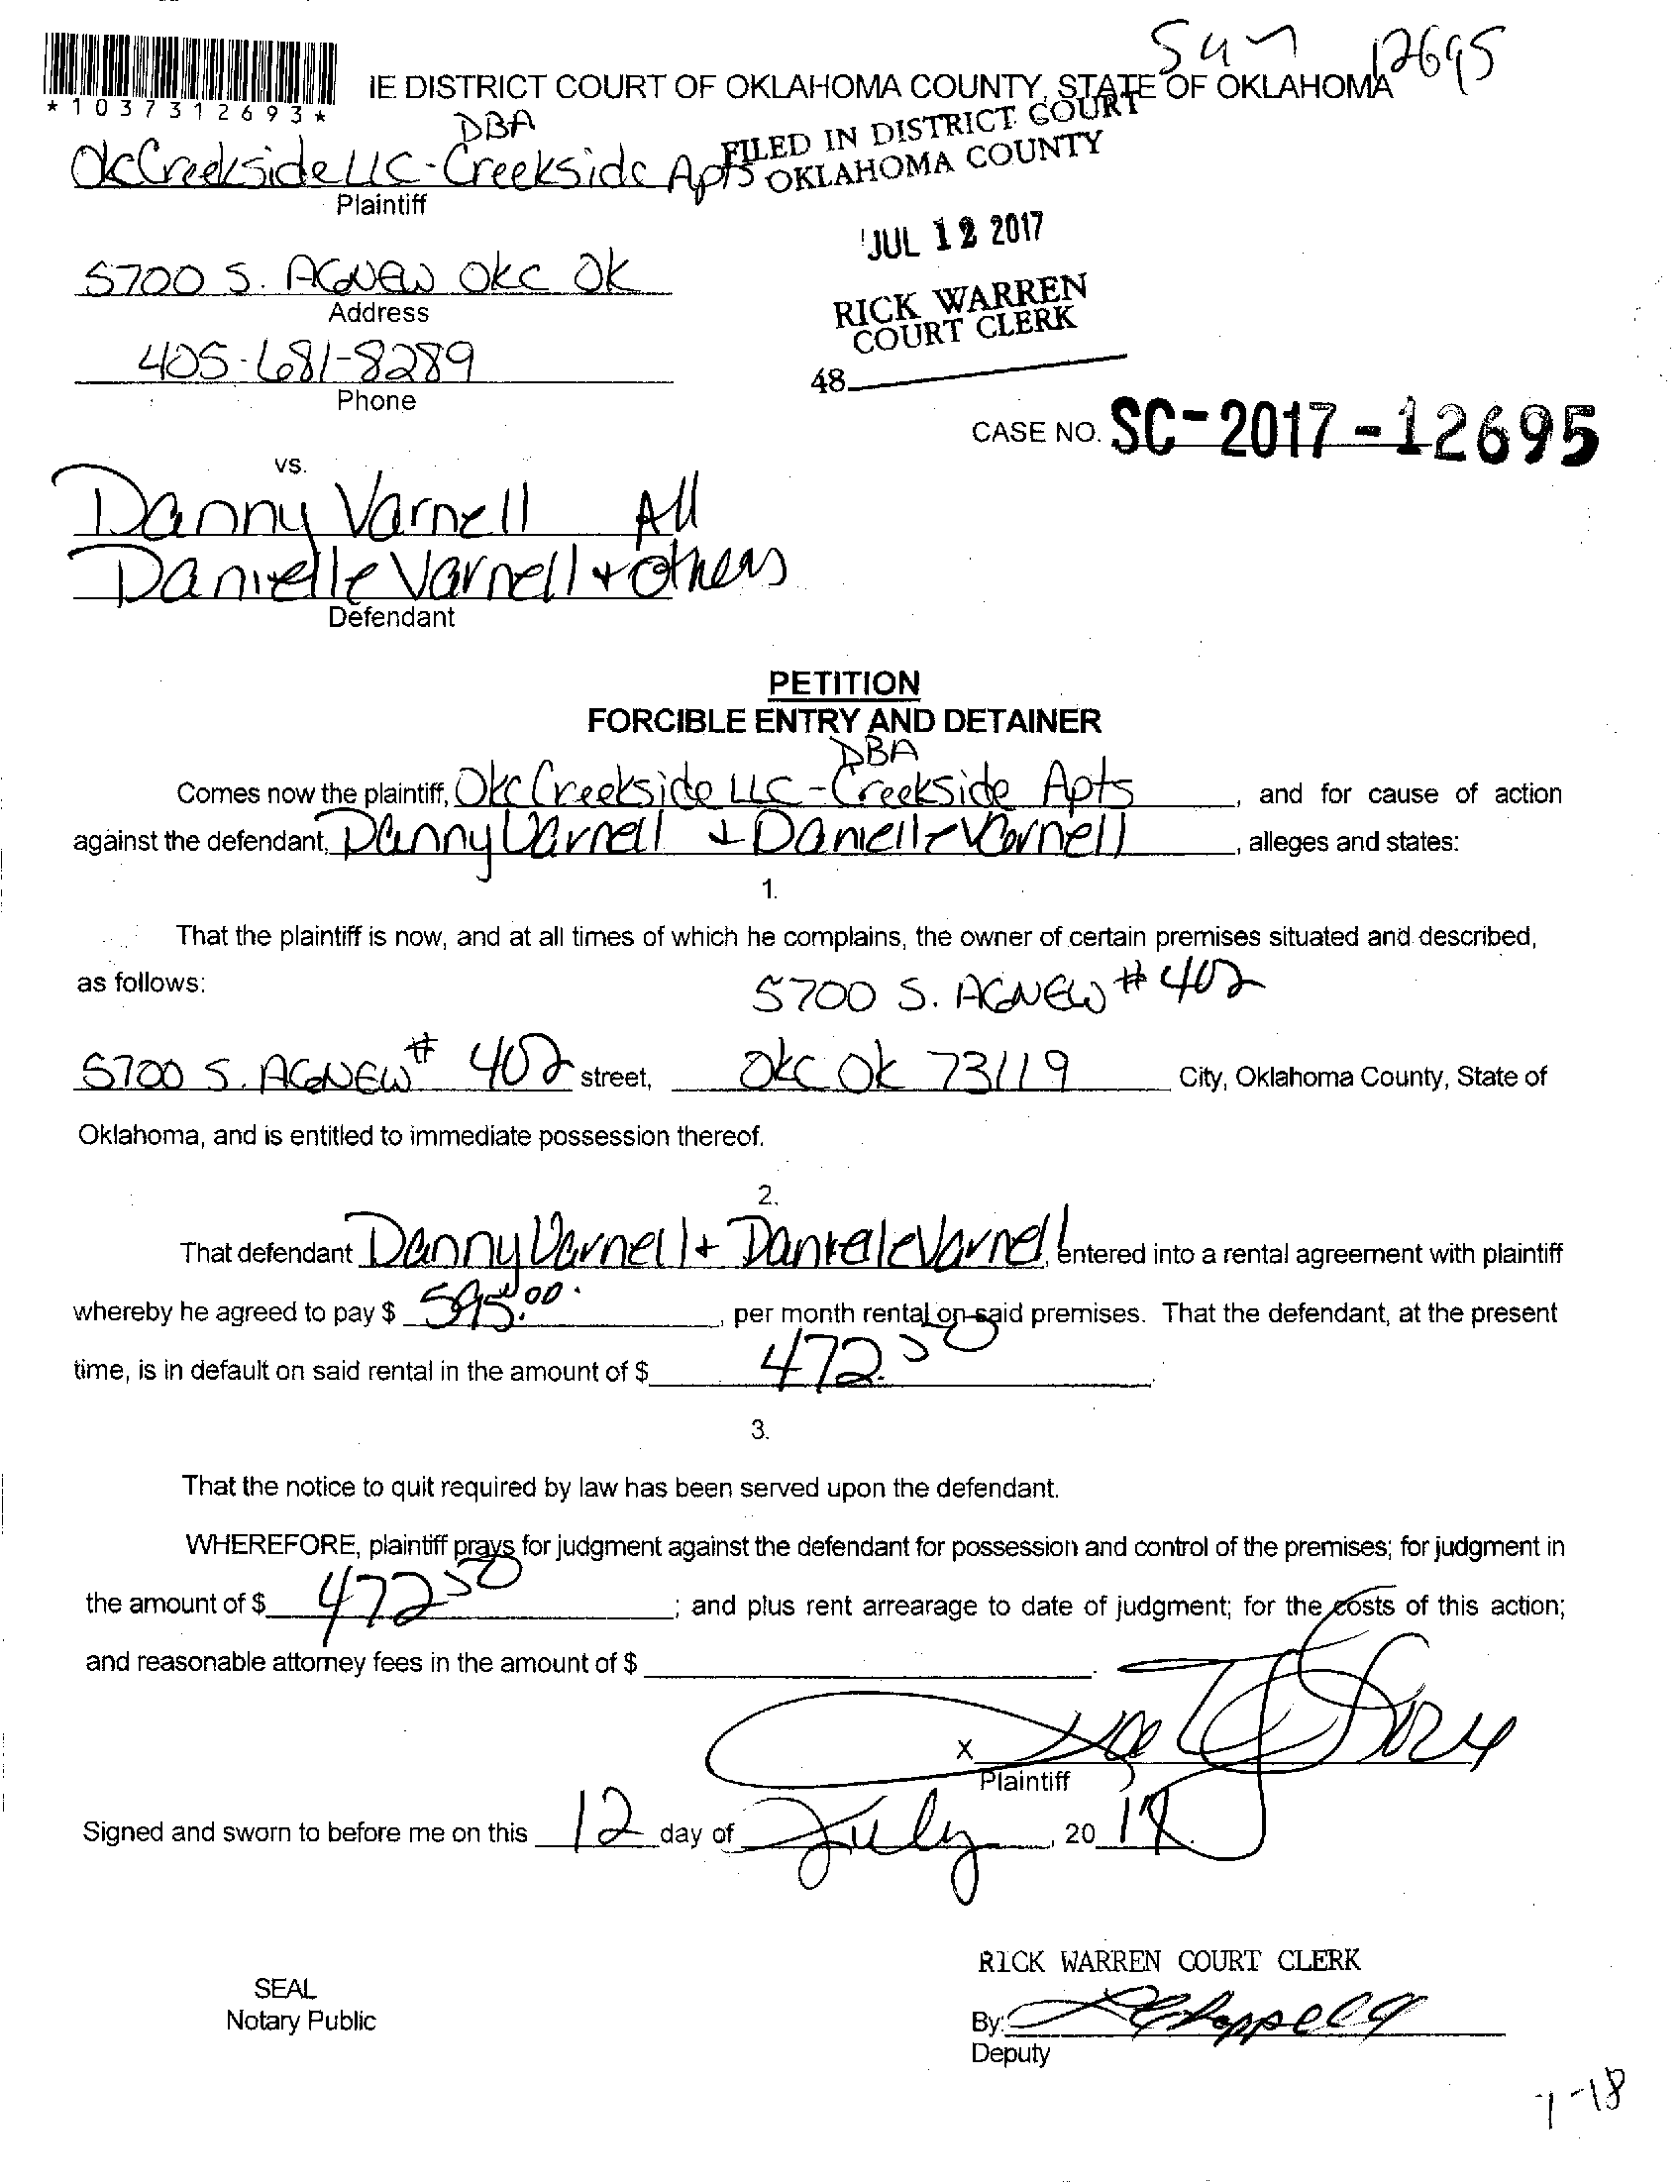 12695
IE DISTRICT COURT OF OKLAHOMA COUNTY, STATE OF OKLAHOMA
*1037312693*
DBA
Okc Creekside LLC - Creekside Apts
Plaintiff
FILED IN DISTRICT COURT
OKLAHOMA COUNTY
JUL 12 2017
RICK WARREN
COURT CLERK
48
5700 S. AGNEW OKC OK
Address
405-681-8289
Phone
CASE NO. SC-2017-12695
vs.
Danny Varnell All
Danielle Varnell + others
Defendant
PETITION
FORCIBLE ENTRY AND DETAINER
DBA
Comes now the plaintiff, Okc Creekside LLC - Creekside Apts, and for cause of action
against the defendant, Danny Varnell + Danielle Varnell, alleges and states:
1.
That the plaintiff is now, and at all times of which he complains, the owner of certain premises situated and described,
as follows: 5700 S. AGNEW # 402
5700 S. AGNEW # 402 street, OKC OK 73119 City, Oklahoma County, State of
Oklahoma, and is entitled to immediate possession thereof.
2.
That defendant Danny Varnell + Danielle Varnell, entered into a rental agreement with plaintiff
whereby he agreed to pay $ 595.00, per month rental on said premises. That the defendant, at the present
time, is in default on said rental in the amount of $ 472.50
3.
That the notice to quit required by law has been served upon the defendant.
WHEREFORE, plaintiff prays for judgment against the defendant for possession and control of the premises; for judgment in
the amount of $ 472 50; and plus rent arrearage to date of judgment; for the costs of this action;
and reasonable attorney fees in the amount of $
X
Plaintiff
Signed and sworn to before me on this 12 day of July, 20 17
RICK WARREN COURT CLERK
SEAL
Notary Public
By:
Deputy
7-18